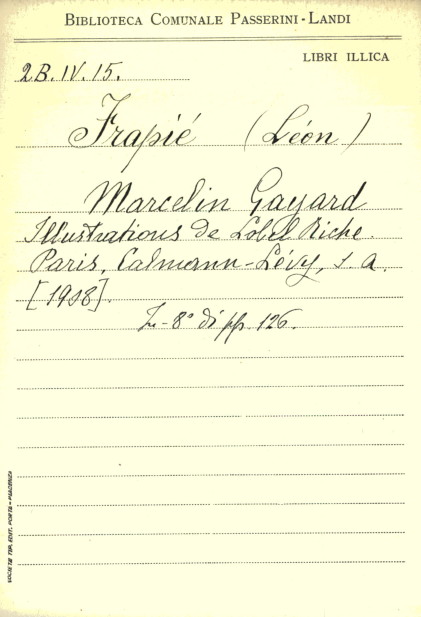 BIBLIOTECA COMUNALE PASSERINI-LANDI
LIBRI ILLICA
2B. IV. 15.
Frapié (Léon)
Marcelin Gayard
Illustrations de Lobel Riche.
Paris, Calmann-Lévy, s. a.
[1908].
In-8° di pp. 126.
SOCIETÀ TIP. EDIT. PORTA - PIACENZA